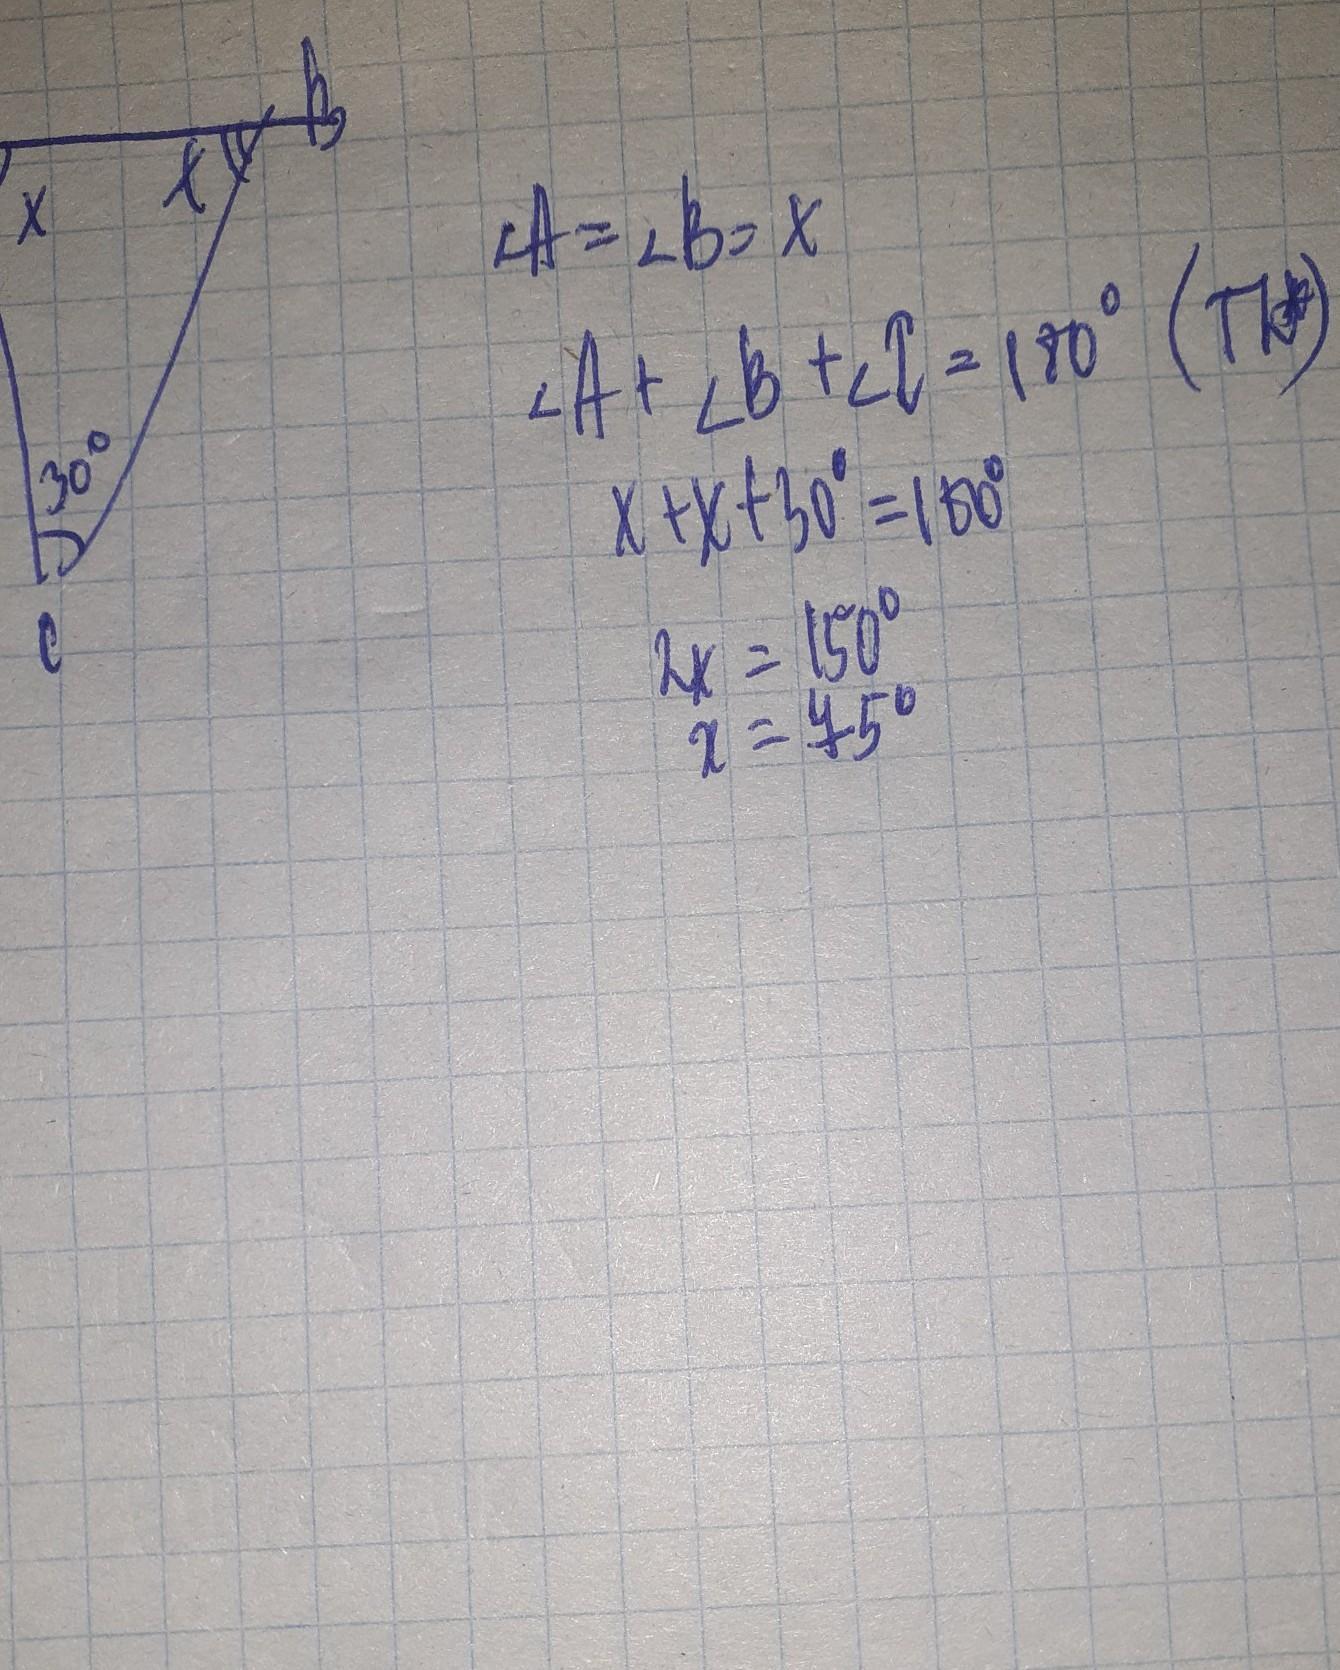 B
x x
30°
C
∠A = ∠B = x
∠A + ∠B + ∠C = 180°
x + x + 30° = 180°
2x = 150°
x = 75°